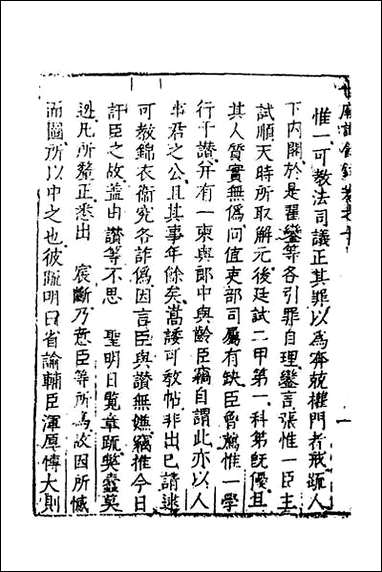 惟一可教法司議正其罪以為奔競權門者戒疏入
下内閣於是瞿鑾等各引罪自理鑾言張惟一臣主
試順天時所取解元後廷試二甲第一科第旣優且
其人質實無偽問值吏部司屬有缺臣曾薦惟一學
行于讃并有一柬與郎中與齡臣竊自謂此亦以人
事君之公且其事年餘矣嵩諉可教帖非出已請逮
可教錦衣衞究各詐偽因言臣與讃無嫌竊推今日
訐臣之故盖由讃等不思 聖明日覧章疏獘蠹莫
逃凡所釐正悉出 宸斷乃意臣等所為故因所憾
而圖所以中之也彼疏明曰省諭輔臣渾厚愽大則